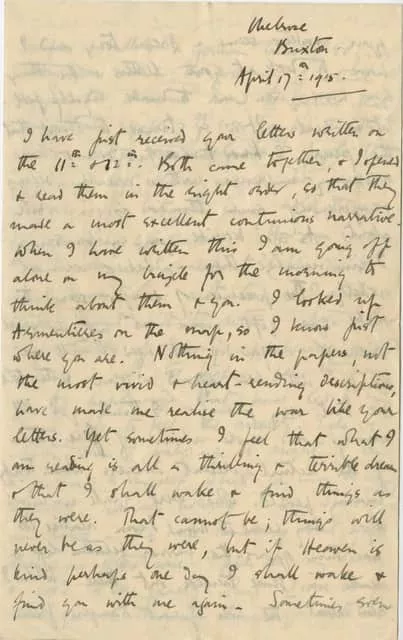 Melrose
Buxton
April 17th 1915.
I have just received your letters written on
the 11th & 12th. Both came together, & I opened
& read them in the right order, so that they
made a most excellent continuous narrative.
When I have written this I am going off
alone on my bicycle for the morning to
think about them & you. I looked up
Armentières on the map, so I know just
where you are. Nothing in the papers, not
the most vivid & heart-rending descriptions,
have made me realise the war like your
letters. Yet sometimes I feel that what I
am reading is all a thrilling & terrible dream
& that I shall wake & find things as
they were. That cannot be; things will
never be as they were, but if Heaven is
kind perhaps one day I shall wake &
find you with me again - Sometimes even